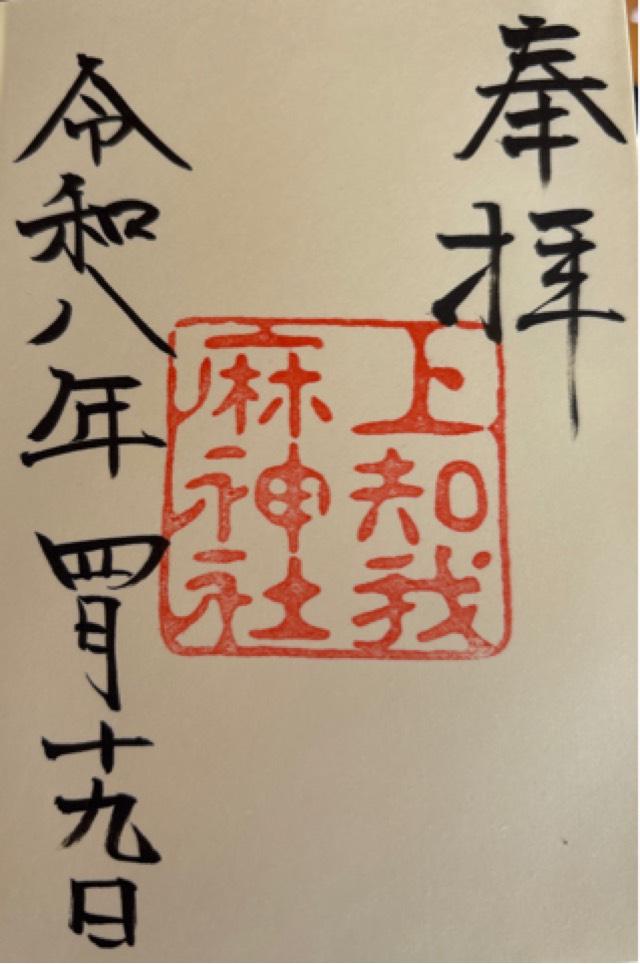 奉拝
上知我
麻神社
令和八年四月十九日